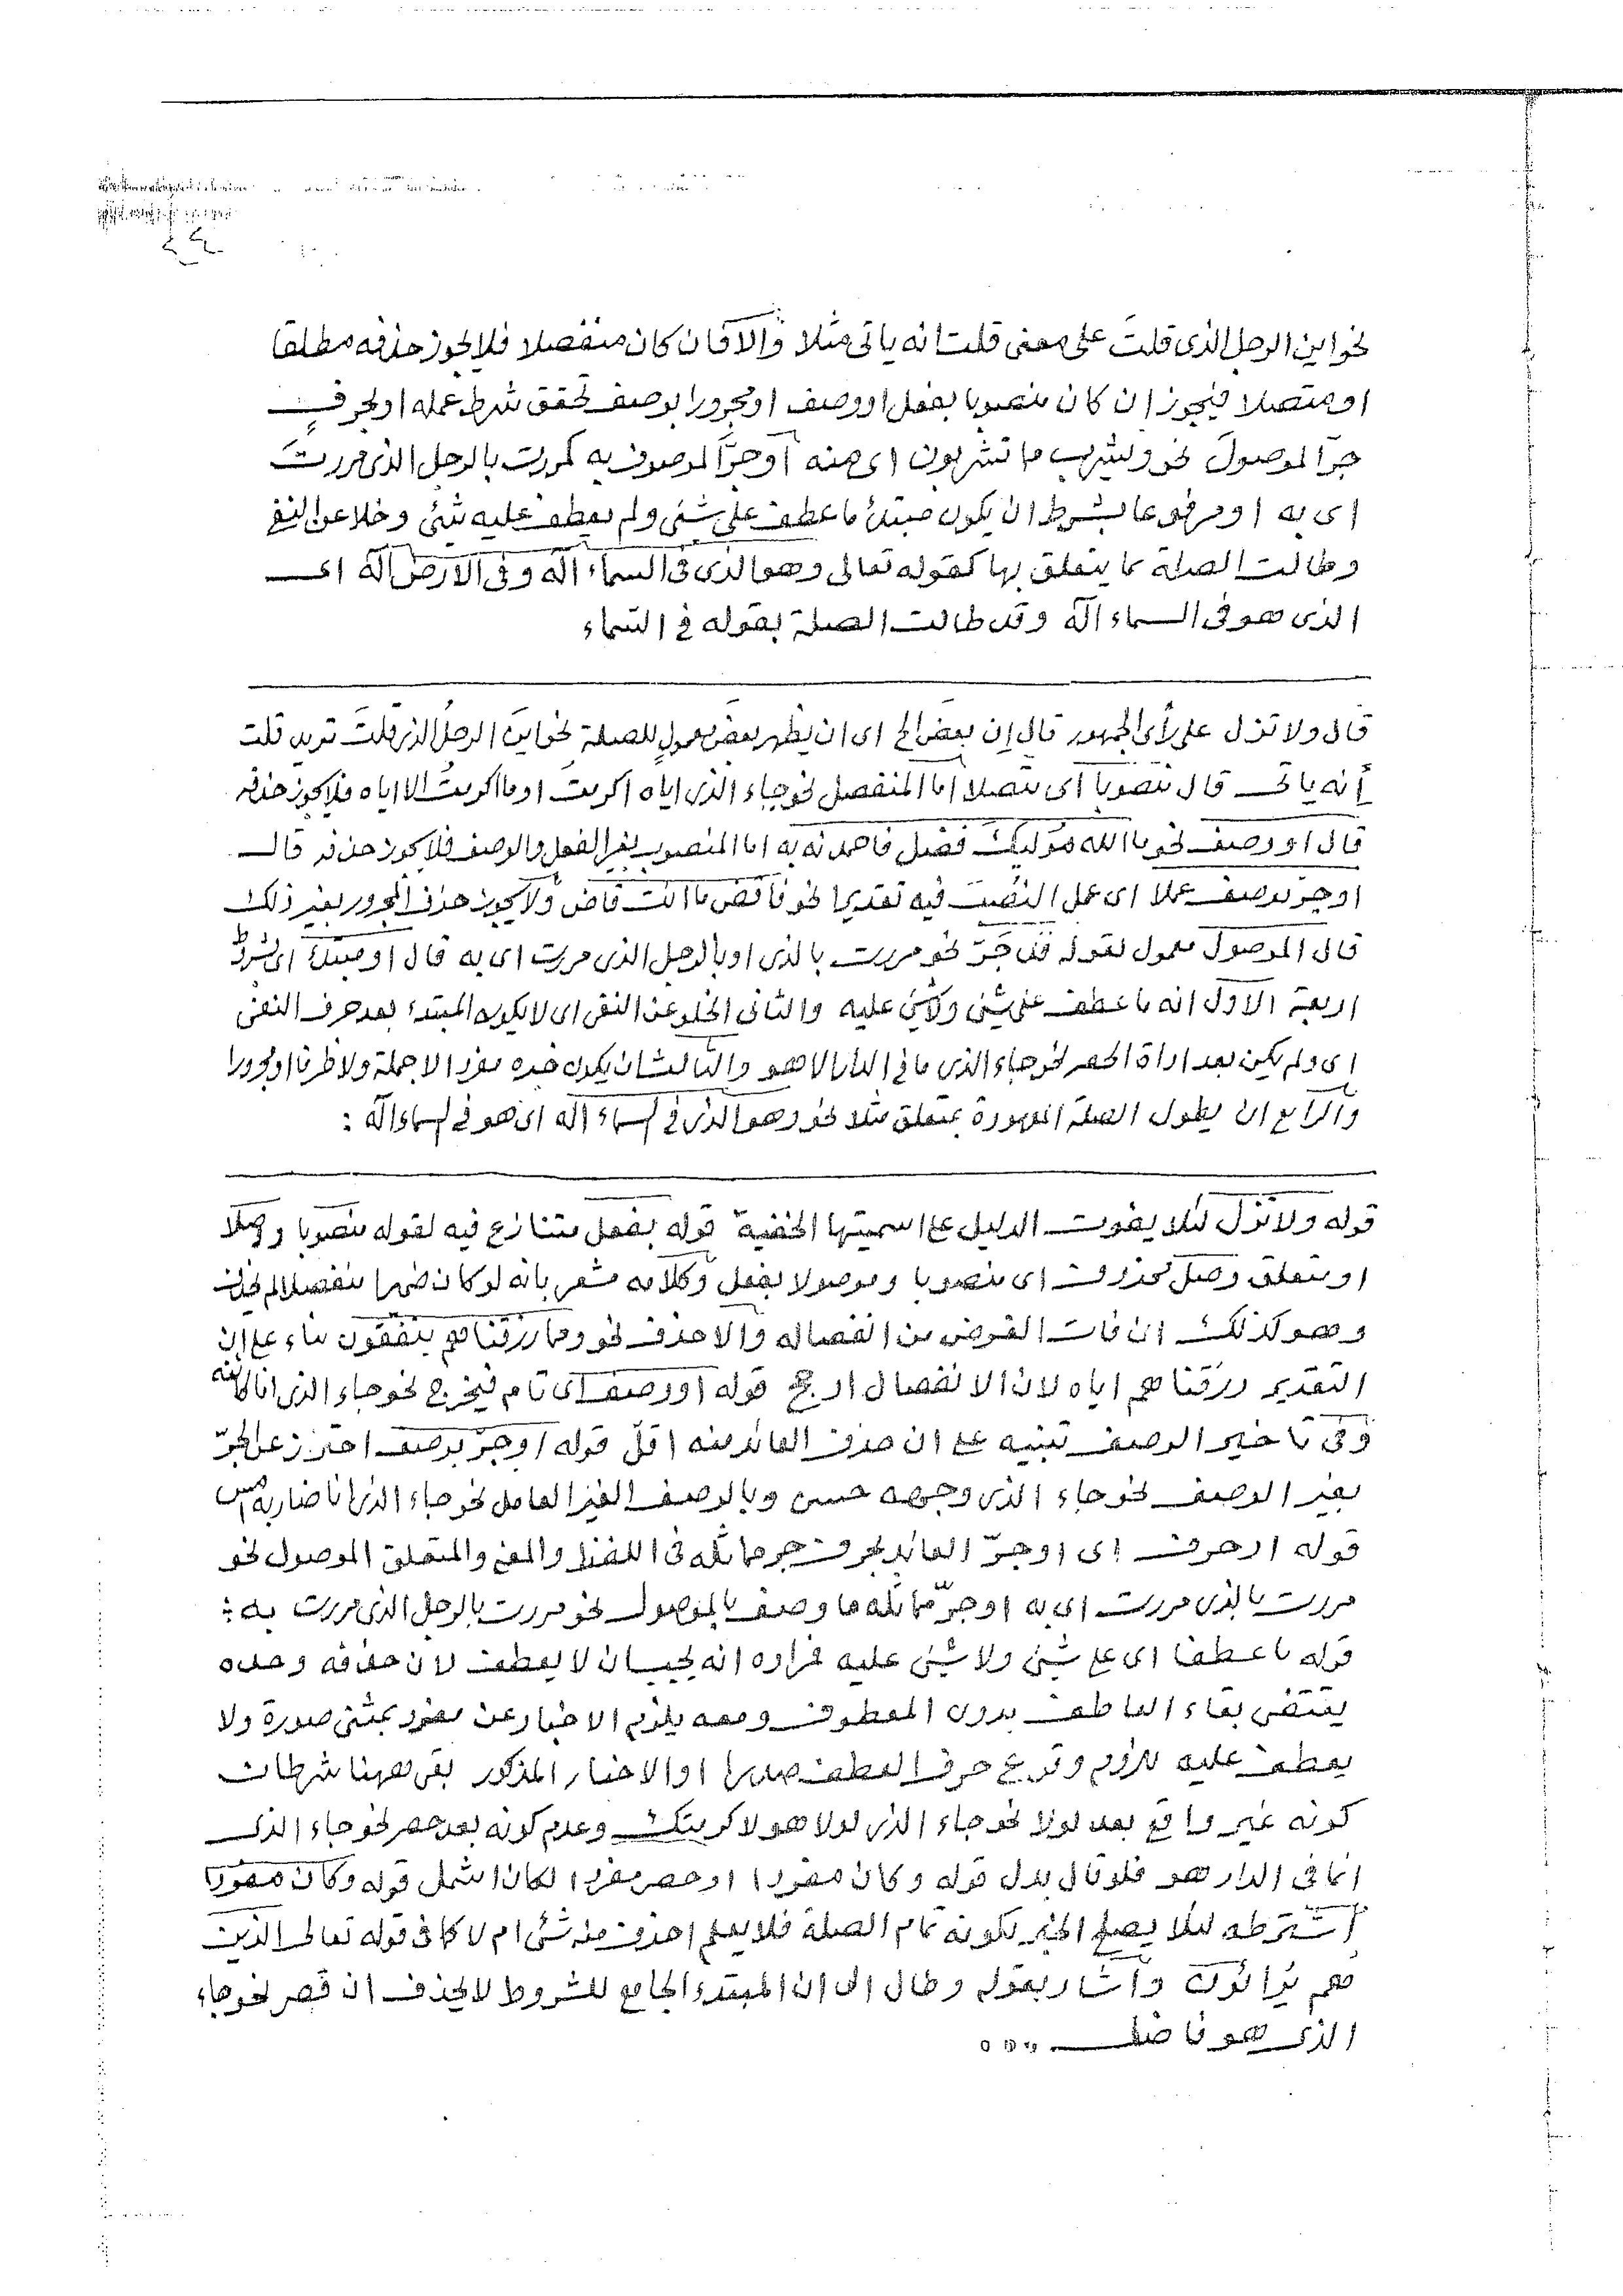 ٤٤
نحو اين الرجل الذى قلتَ على معنى قلت انه ياتى مثلا والا فان كان منفصلا فلا يجوز حذفه مطلقا
او متصلا فيجوز ان كان منصوبا بفعل او وصف او مجرورا بوصف تحقق شرط عمله او بحرفٍ
جرّ الموصولَ نحو ويشرب مما تشربون اى منه او جرَّ الموصوف به كمررت بالرجل الذى مررتَ
اى به او مرفوعا بشرط ان يكون مبتدأ ما عطف على شئى ولم يعطف عليه شئى وخلا عن النفى
وطالت الصلة بما يتعلق بها كقوله تعالى وهو الذى فى السماء آله وفى الارض آله اى
الذى هو فى السماء آله وقد طالت الصلة بقوله فى السماء
قال ولا تزل على رأى الجمهور قال إن بعض الخ اى ان يظهر بعض معمولٍ للصلة نحو اين الرجل الذى قلتَ تريد قلت
أنه ياتى قال منصوبا اى متصلا اما المنفصل نحو جاء الذى اياه اكرمت او ما اكرمتُ الا اياه فلا يجوز حذفه
قال او وصف نحو ما الله موليك فضل فاحمدنه به اما المنصوب بغير الفعل والوصف فلا يجوز حذفه قال
او جرّ بوصف عملا اى عمل النصبَ فيه تقديرا نحو فاقض ما انت قاض ولا يجوز حذف المجرور بغير ذلك
قال الموصول معمول لقوله قد جَرّ نحو مررت بالذى او بالرجل الذى مررت اى به قال او مبتدأ اى بشروط
اربعة الاول انه ما عطف على شئى ولا شئى عليه والثانى الخلو عن النفى اى لا يكون المبتدء بعد حرف النفى
اى ولم يكن بعد اداة الحصر نحو جاء الذى ما فى الدار الا هو والثالث ان يكون خبره مفردا لا جملة ولا ظرفا او مجرورا
والرابع ان يطول الصلة المهورة بمتعلق مثلا نحو وهو الذى فى السماء اله اى هو فى السماء آله :
قوله ولا تزل لئلا يفوت الدليل على اسميتها الخفية قوله بفعل متنازع فيه لقوله منصوبا وصلا
او متعلق وصل محذوف اى منصوبا وموصولا بفعل وكلامه مشعر بانه لو كان ضميرا منفصلا لم يحذف
وهو كذلك ان فات الغرض من انفصاله والا حذف نحو ومما رزقناهم ينفقون بناء على ان
التقدير رزقناهم اياه لان الانفصال ارجح قوله او وصف اى تام فيخرج نحو جاء الذى انا
وفى تاخير الوصف تنبيه على ان حذف العائد منه اقلّ قوله او جرّ بوصف احترز عن الجرّ
بغير الوصف نحو جاء الذى وجهه حسن وبالوصف الغير العامل نحو جاء الذى انا ضاربه امس
قوله او حرف اى او جرّ العائد بحرف جر مماثله فى اللفظ والمعنى والمتعلق الموصول نحو
مررت بالذى مررت اى به او جرّ مماثله ما وصف بالموصول نحو مررت بالرجل الذى مررت به :
قوله ما عطفا اى على شئى ولا شئى عليه فمراده انه يجب ان لا يعطف لان حذفه وحده
يقتضى بقاء العاطف بدون المعطوف ومعه يلزم الاخبار عن مفرد بمثنى صورة ولا
يعطف عليه للزوم وقوع حرف العطف صدرا او الاخبار المذكور بقى ههنا شرطان
كونه غير واقع بعد لولا نحو جاء الذى لولا هو لاكرمتك وعدم كونه بعد حصر نحو جاء الذى
انما فى الدار هو فلو قال بدل قوله وكان مفردا او حصر مفردا لكان اشمل قوله وكان مفردا
اشترطه لئلا يصلح الخبر لكونه تمام الصلة فلا يعلم احذف منه شئى ام لا كما فى قوله تعالى الذين
هم يُرائون واشار بقوله وطال الى ان المبتدء الجامع للشروط لا يحذف ان قصر نحو جاء
الذى هو فاضل